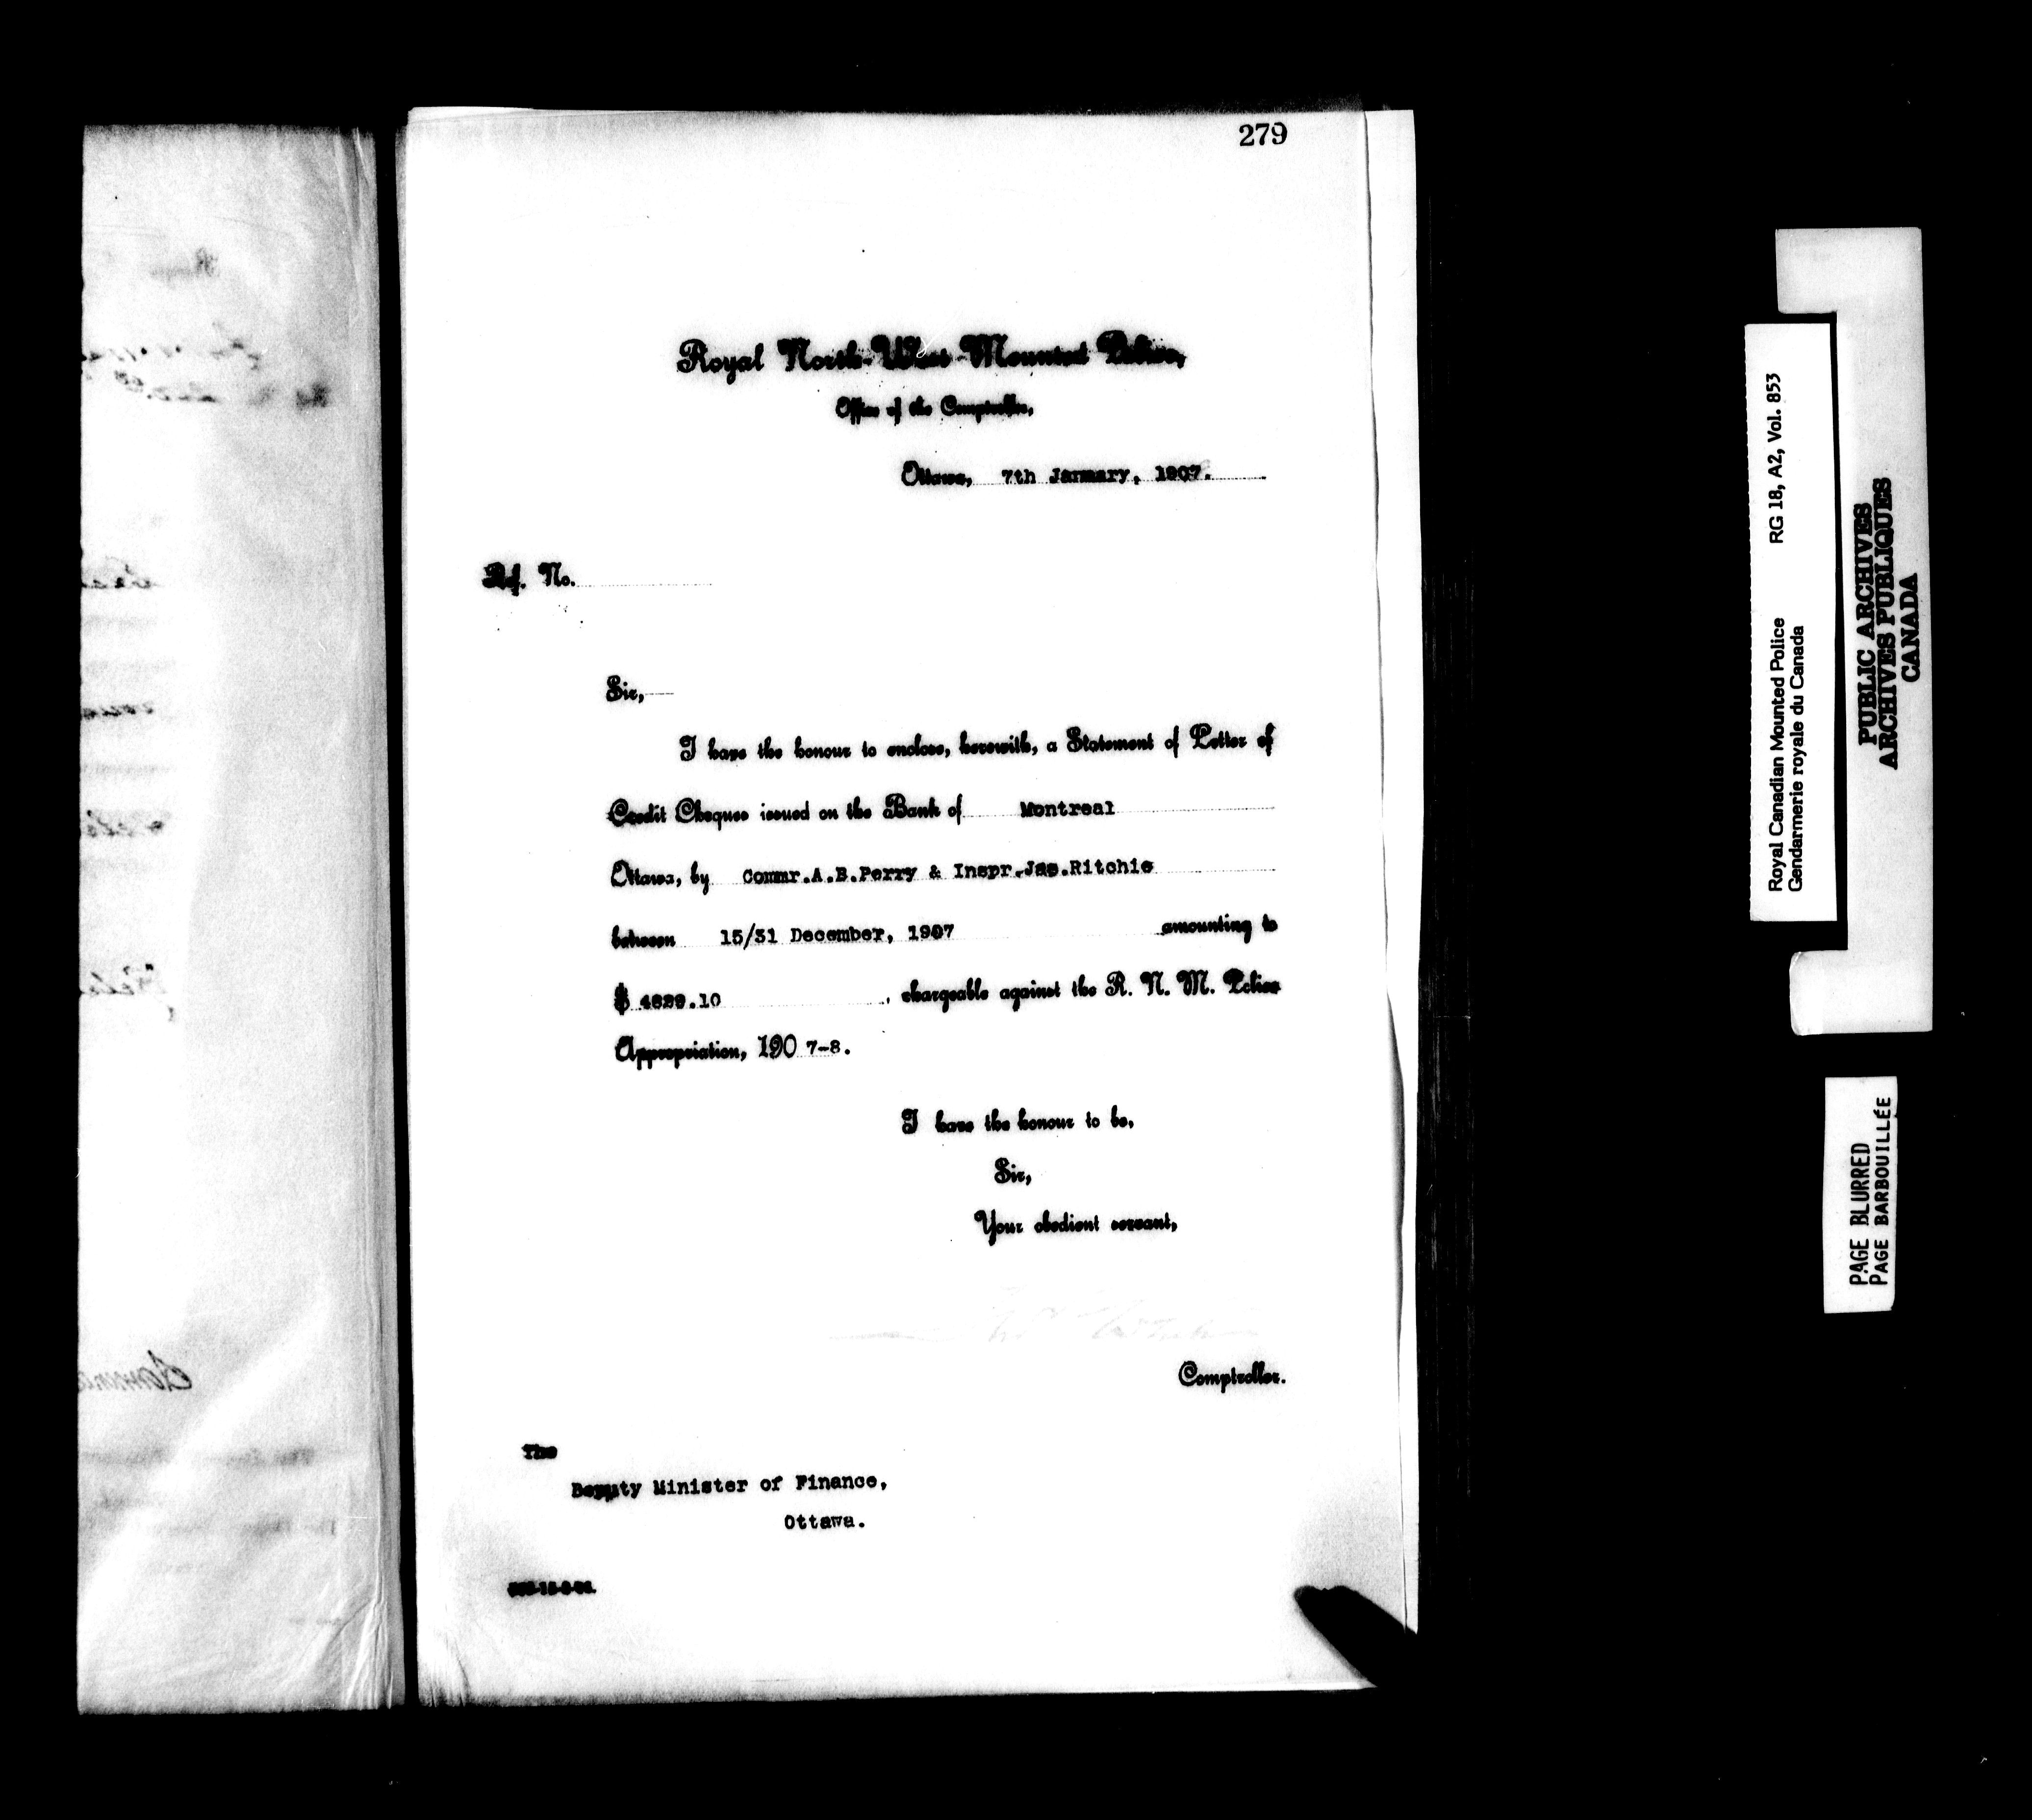 279
Royal North-West Mounted Police,
Office of the Comptroller,
Ottawa, 7th January, 1907.
Ref. No.
Sir,
I have the honour to enclose, herewith, a Statement of Letter of
Credit Cheques issued on the Bank of Montreal
Ottawa, by Commr.A.B.Perry & Inspr.Jas.Ritchie
between 15/31 December, 1907 amounting to
$ 4829.10 , chargeable against the R. N. M. Police
Appropriation, 190 7-8.
I have the honour to be,
Sir,
Your obedient servant,
Comptroller.
The
Deputy Minister of Finance,
Ottawa.
Royal Canadian Mounted Police RG 18, A2, Vol. 853
Gendarmerie royale du Canada
PUBLIC ARCHIVES
ARCHIVES PUBLIQUES
CANADA
PAGE BLURRED
PAGE BARBOUILLÉE